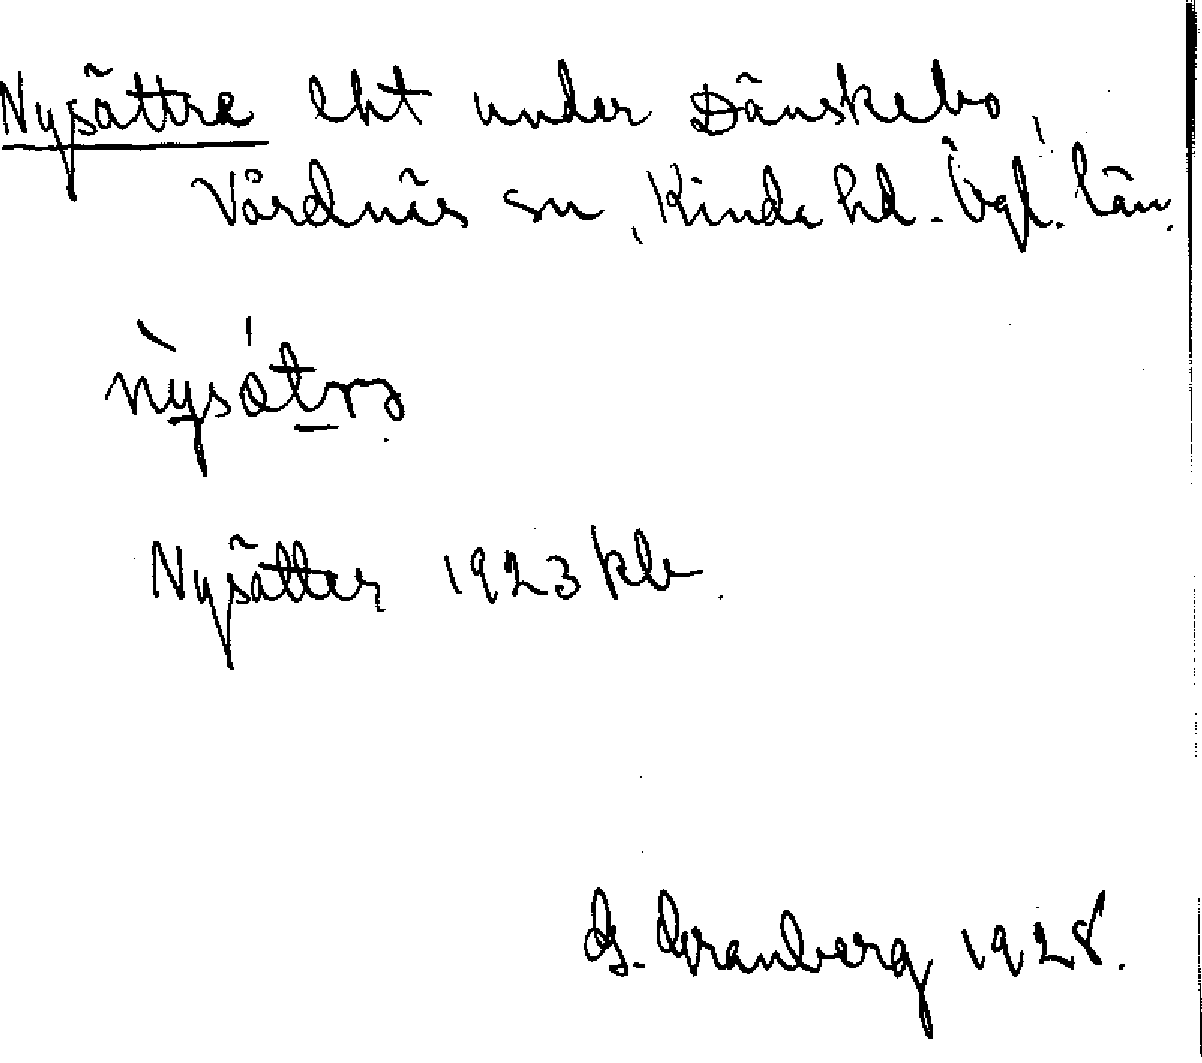 Nysättra lht under Dänskebo,
Vårdnäs sn, Kinda hd. Ögl. län.
nysátrə
Nysätter 1923 kb
G. Granberg 1928.